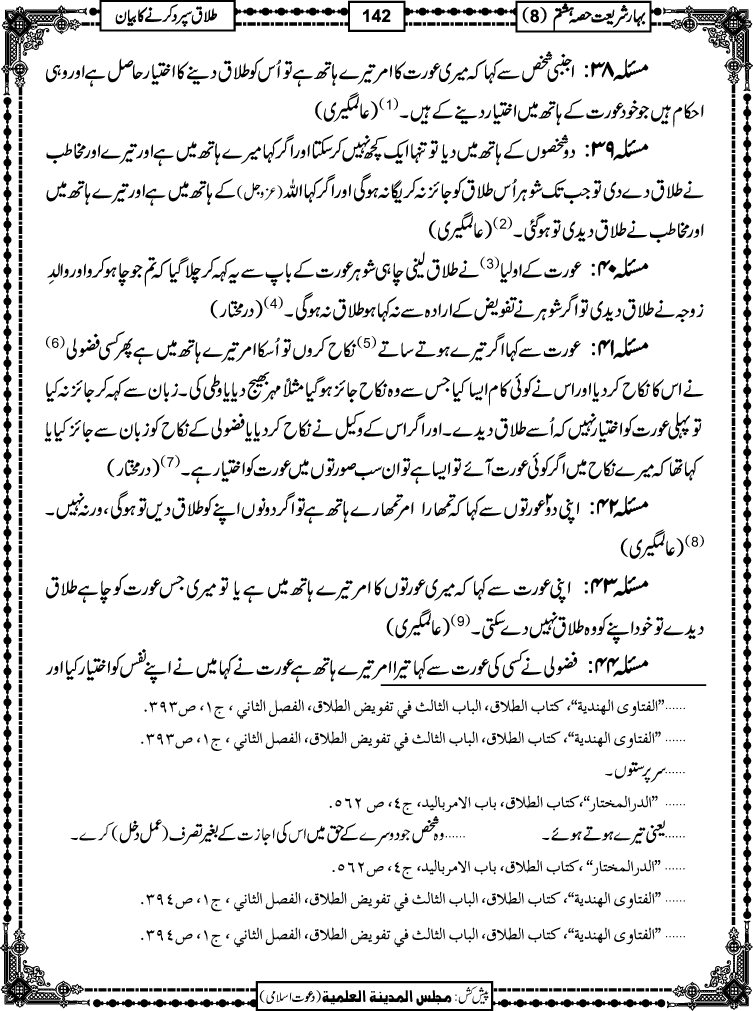 بہارِ شریعت حصہ ہشتم (8)
142
طلاق سپرد کرنے کا بیان
مسئلہ ۳۸: اجنبی شخص سے کہا کہ میری عورت کا امر تیرے ہاتھ ہے تو اُس کو طلاق دینے کا اختیار حاصل ہے اور وہی
احکام ہیں جو خود عورت کے ہاتھ میں اختیار دینے کے ہیں۔ (1) (عالمگیری)
مسئلہ ۳۹: دو شخصوں کے ہاتھ میں دیا تو تنہا ایک کچھ نہیں کرسکتا اور اگر کہا میرے ہاتھ میں ہے اور تیرے اور مخاطب
نے طلاق دے دی تو جب تک شوہر اُس طلاق کو جائز نہ کریگا نہ ہوگی اور اگر کہا اللہ (عزوجل) کے ہاتھ میں ہے اور تیرے ہاتھ میں
اور مخاطب نے طلاق دیدی تو ہوگئی۔ (2) (عالمگیری)
مسئلہ ۴۰: عورت کے اولیا (3) نے طلاق لینی چاہی شوہر عورت کے باپ سے یہ کہہ کر چلا گیا کہ تم جو چاہو کرو اور والدِ
زوجہ نے طلاق دیدی تو اگر شوہر نے تفویض کے ارادہ سے نہ کہا ہو طلاق نہ ہوگی۔ (4) (درمختار)
مسئلہ ۴۱: عورت سے کہا اگر تیرے ہوتے ساتے (5) نکاح کروں تو اُسکا امر تیرے ہاتھ میں ہے پھر کسی فضولی (6)
نے اس کا نکاح کردیا اور اس نے کوئی کام ایسا کیا جس سے وہ نکاح جائز ہوگیا مثلاً مہر بھیج دیا یا وطی کی۔ زبان سے کہہ کر جائز نہ کیا
تو پہلی عورت کو اختیار نہیں کہ اُسے طلاق دیدے۔ اور اگر اس کے وکیل نے نکاح کردیا یا فضولی کے نکاح کو زبان سے جائز کیا یا
کہا تھا کہ میرے نکاح میں اگر کوئی عورت آئے تو ایسا ہے تو ان سب صورتوں میں عورت کو اختیار ہے۔ (7) (درمختار)
مسئلہ ۴۲: اپنی دو۲ عورتوں سے کہا کہ تمھارا امر تمھارے ہاتھ ہے تو اگر دونوں اپنے کو طلاق دیں تو ہوگی، ورنہ نہیں۔
(8) (عالمگیری)
مسئلہ ۴۳: اپنی عورت سے کہا کہ میری عورتوں کا امر تیرے ہاتھ میں ہے یا تو میری جس عورت کو چاہے طلاق
دیدے تو خود اپنے کو وہ طلاق نہیں دے سکتی۔ (9) (عالمگیری)
مسئلہ ۴۴: فضولی نے کسی کی عورت سے کہا تیرا امر تیرے ہاتھ ہے عورت نے کہا میں نے اپنے نفس کو اختیار کیا اور
......”الفتاوی الهندية“، كتاب الطلاق، الباب الثالث في تفويض الطلاق، الفصل الثاني ، ج١، ص٣٩٣.
...... ”الفتاوی الهندية“، كتاب الطلاق، الباب الثالث في تفويض الطلاق، الفصل الثاني ، ج١، ص٣٩٣.
......سرپرستوں۔
...... ”الدرالمختار“،كتاب الطلاق، باب الامرباليد، ج٤، ص ٥٦٢.
......یعنی تیرے ہوتے ہوئے۔ ......وہ شخص جو دوسرے کے حق میں اس کی اجازت کے بغیر تصرف (عمل دخل) کرے۔
...... ”الدرالمختار“ ،كتاب الطلاق، باب الامرباليد، ج٤، ص٥٦٢.
...... ”الفتاوی الهندية“، كتاب الطلاق، الباب الثالث في تفويض الطلاق، الفصل الثاني ، ج١، ص٣٩٤.
...... ”الفتاوی الهندية“، كتاب الطلاق، الباب الثالث في تفويض الطلاق، الفصل الثاني ، ج١، ص٣٩٤.
پیش کش: مجلس المدينة العلمية (دعوت اسلامی)